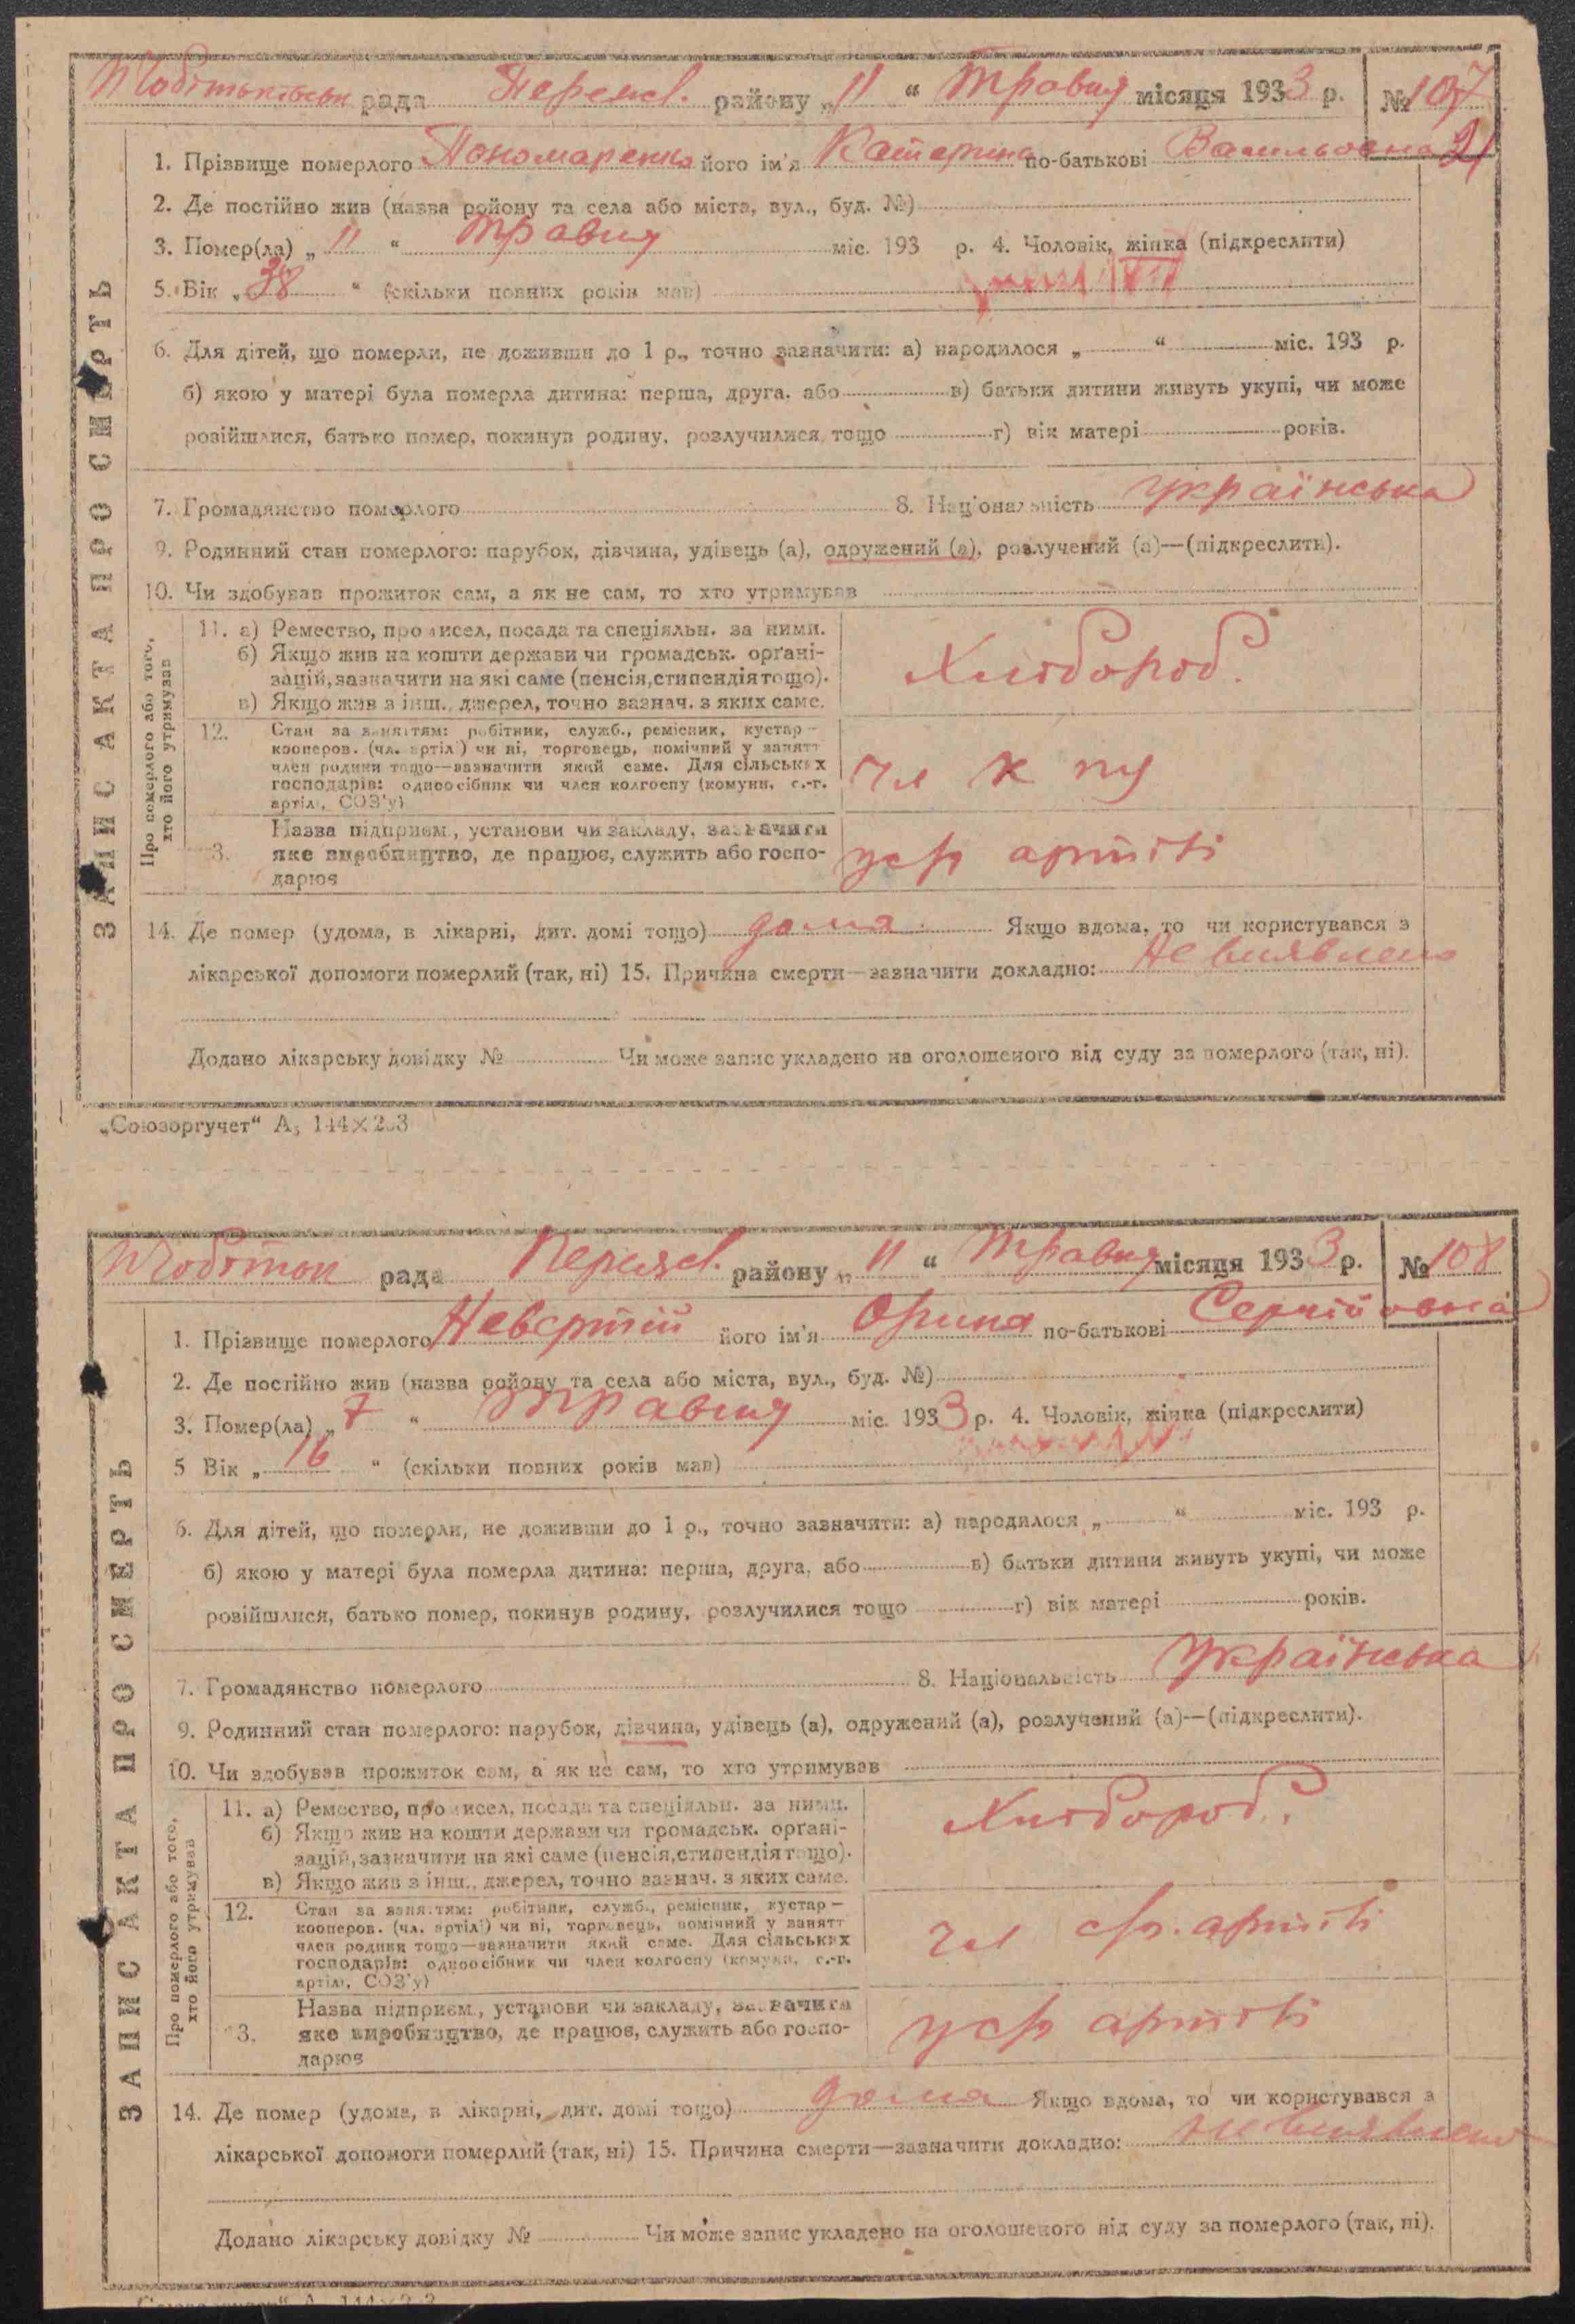 рада Переясл. району „ 11 “ Травня місяця 1933 р. № 107
21
1. Прізвище померлого Пономаренко його ім'я Катерина по-батькові Васильовна
2. Де постійно жив (назва ройону та села або міста, вул., буд. №)
3. Помер(ла) „ 11 “ травня міс. 193 р. 4. Чоловік, жінка (підкреслити)
5. Вік „ 38 “ (скільки повних років мав)
6. Для дітей, що померли, не доживши до 1 р., точно зазначити: а) народилося „ “ міс. 193 р.
б) якою у матері була померла дитина: перша, друга. або в) батьки дитини живуть укупі, чи може
розійшлися, батько помер, покинув родину, розлучилися, тощо г) вік матері років.
7. Громадянство померлого 8. Національність українська
9. Родинний стан померлого: парубок, дівчина, удівець (а), одружений (а), розлучений (а)—(підкреслити).
10. Чи здобував прожиток сам, а як не сам, то хто утримував
ЗАПИС АКТА ПРО СМЕРТЬ
Про померлого або того, хто його утримував
11. а) Ремество, промисел, посада та спеціяльн. за ними.
б) Якщо жив на кошти держави чи громадськ. органі-
зацій, зазначити на які саме (пенсія, стипендія тощо).
в) Якщо жив з інш., джерел, точно зазнач. з яких саме.
Хлібороб.
12. Стан за заняттям: робітник, служб., ремісник, кустар—
кооперов. (чл. артілі) чи ні, торговець, помічний у занятт
член родини тощо—зазначити який саме. Для сільських
господарів: одноосібник чи член колгоспу (комуни, с.-г.
артілі, СОЗ'у)
чл
13. Назва підприєм., установи чи закладу, зазначити
яке виробництво, де працює, служить або госпо-
дарює
артілі
14. Де помер (удома, в лікарні, дит. домі тощо) дома Якщо вдома, то чи користувався з
лікарської допомоги померлий (так, ні) 15. Причина смерти—зазначити докладно: Не виявлено
Додано лікарську довідку № Чи може запис укладено на оголошеного від суду за померлого (так, ні).
„Союзоргучет“ А5 144×203
рада Переясл. району „ 11 “ Травня місяця 1933 р. № 108
1. Прізвище померлого його ім'я Орина по-батькові Сергійовна
2. Де постійно жив (назва ройону та села або міста, вул., буд. №)
3. Помер(ла) „ 7 “ травня міс. 1933 р. 4. Чоловік, жінка (підкреслити)
5 Вік „ 16 “ (скільки повних років мав)
6. Для дітей, що померли, не доживши до 1 р., точно зазначити: а) народилося „ “ міс. 193 р.
б) якою у матері була померла дитина: перша, друга, або в) батьки дитини живуть укупі, чи може
розійшлися, батько помер, покинув родину, розлучилися тощо г) вік матері років.
7. Громадянство померлого 8. Національність українська
9. Родинний стан померлого: парубок, дівчина, удівець (а), одружений (а), розлучений (а)—(підкреслити).
10. Чи здобував прожиток сам, а як не сам, то хто утримував
ЗАПИС АКТА ПРО СМЕРТЬ
Про померлого або того, хто його утримував
11. а) Ремество, промисел, посада та спеціяльн. за ними.
б) Якщо жив на кошти держави чи громадськ. органі-
зацій, зазначити на які саме (пенсія, стипендія тощо).
в) Якщо жив з інш., джерел, точно зазнач. з яких саме.
Хлібороб.
12. Стан за заняттям: робітник, служб., ремісник, кустар—
кооперов. (чл. артілі) чи ні, торговець, помічний у занятт
член родини тощо—зазначити який саме. Для сільських
господарів: одноосібник чи член колгоспу (комуни, с.-г.
артілі, СОЗ'у)
чл артілі
13. Назва підприєм., установи чи закладу, зазначити
яке виробництво, де працює, служить або госпо-
дарює
артілі
14. Де помер (удома, в лікарні, дит. домі тощо) дома Якщо вдома, то чи користувався з
лікарської допомоги померлий (так, ні) 15. Причина смерти—зазначити докладно: не виявлено
Додано лікарську довідку № Чи може запис укладено на оголошеного від суду за померлого (так, ні).